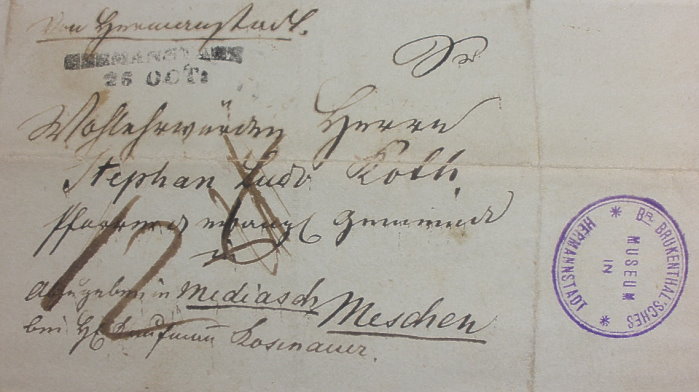 Von Hermannstadt.
HERMANSTADT
26 OCT:
Sr
Wohlehrwürden Herrn
Stephan Ludw Roth,
Pfarrer d evangl Gemeinde
in
12
Abzugeben in Mediasch Meschen
bei H Kaufmann Kosenauer.
Br. BRUKENTHAL'SCHES
MUSEUM
IN
* HERMANNSTADT *